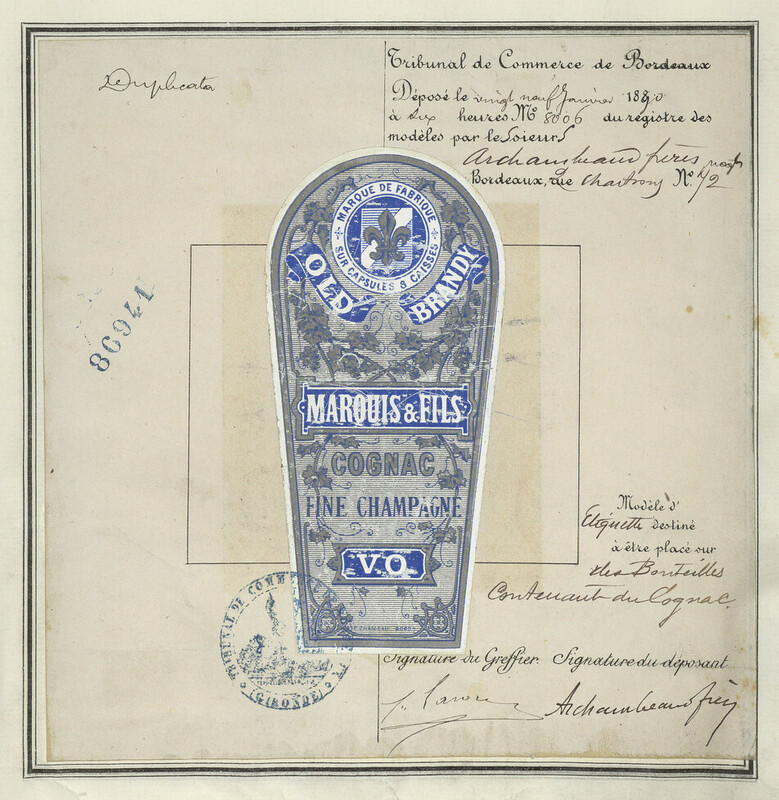 Duplicata
Tribunal de Commerce de Bordeaux
Déposé le vingt neuf Janvier 1880
à dix heures No 8006 du régistre des
modèles par le Sieurs
Archambeaud frères
Bordeaux, rue Chartrons No 72
86941
MARQUE DE FABRIQUE
SUR CAPSULES & CAISSES
OLD BRANDY
MARQUIS & FILS
COGNAC
FINE CHAMPAGNE
V.O.
Modèle d'
Etiquette destiné
à être placé sur
des Bouteilles
Contenant du Cognac.
TRIBUNAL DE COMMERCE DE
(GIRONDE)
Signature du Greffier. Signature du déposant
Archambeaud frères